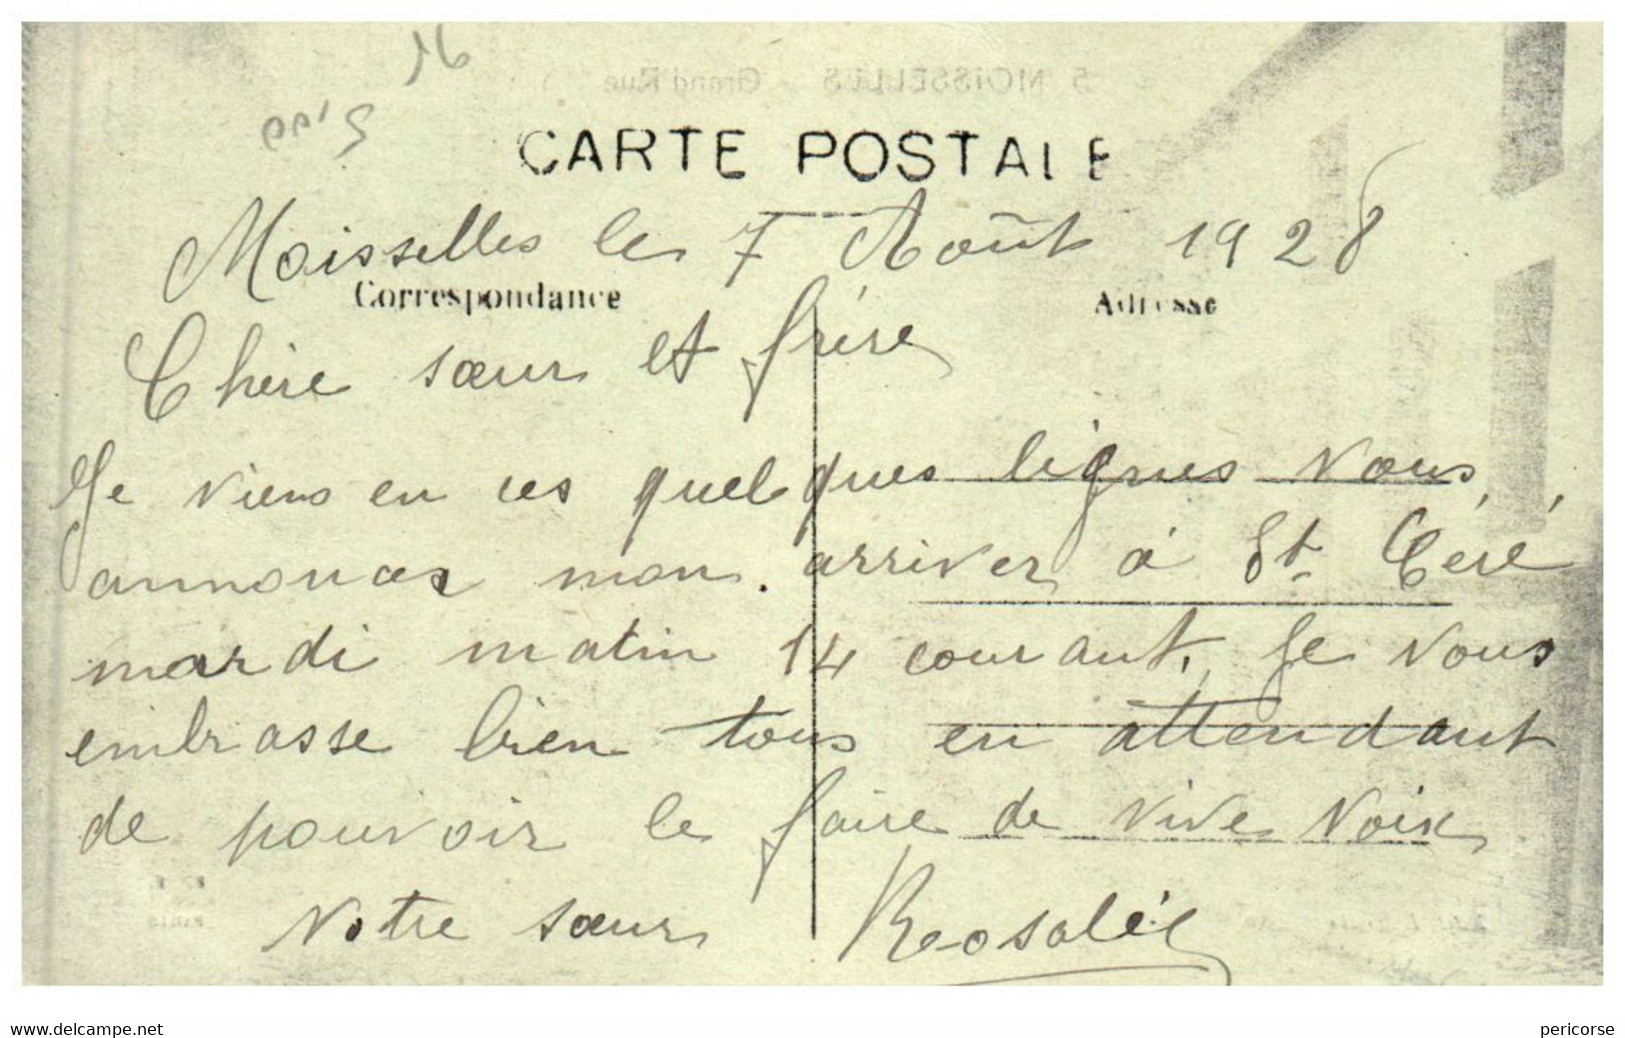 16
5 MOISSELLES - Grand Rue
CARTE POSTALE
Moisselles le 7 Août 1928
Correspondance
Adresse
Chère sœur et frère
Je viens en ces quelques lignes vous
annoncer mon arriver à St Céré
mardi matin 14 courant, Je vous
embrasse bien tous en attendant
de pouvoir le faire de vive voix
Votre sœur Rosalie
www.delcampe.net
pericorse